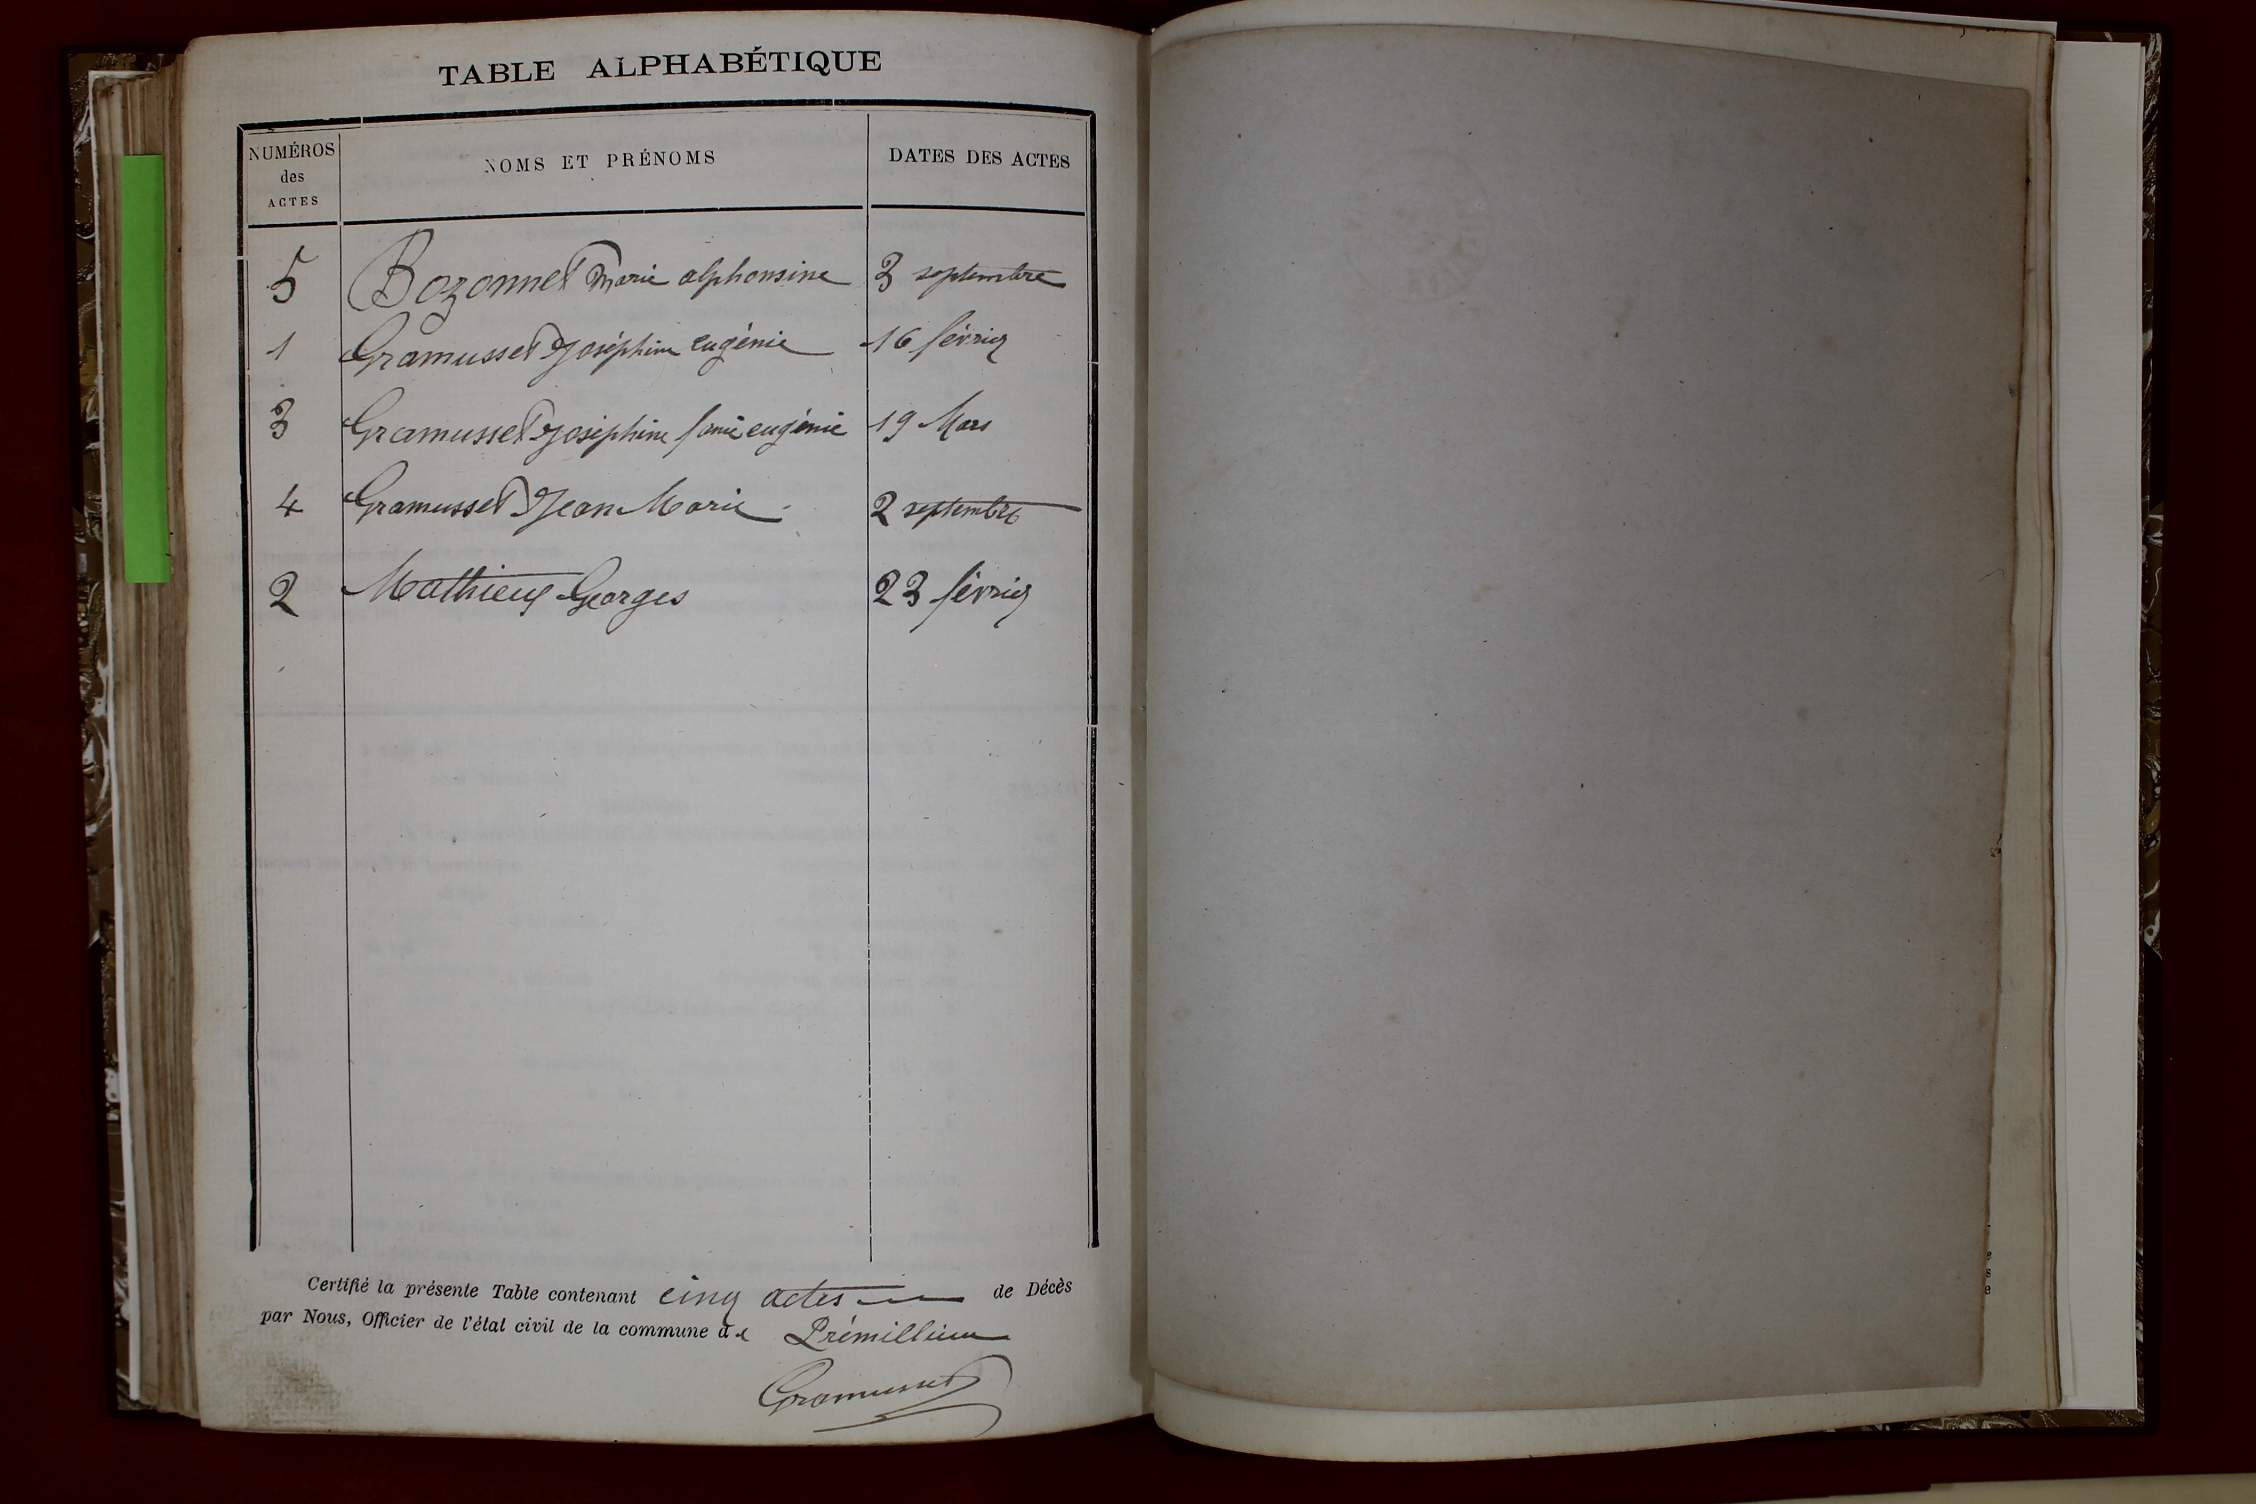 TABLE ALPHABÉTIQUE
NUMÉROS des ACTES NOMS ET PRÉNOMS DATES DES ACTES
5 Bozonnet Marie alphonsine 3 septembre
1 Gramusset Joséphine eugénie 16 février
3 Gramusset Joséphine fanie eugénie 19 Mars
4 Gramusset Jean Marie 2 septembre
2 Mathieux Georges 23 février
Certifié la présente Table contenant cinq actes de Décès
par Nous, Officier de l'état civil de la commune de Prémillieu
Gramusset